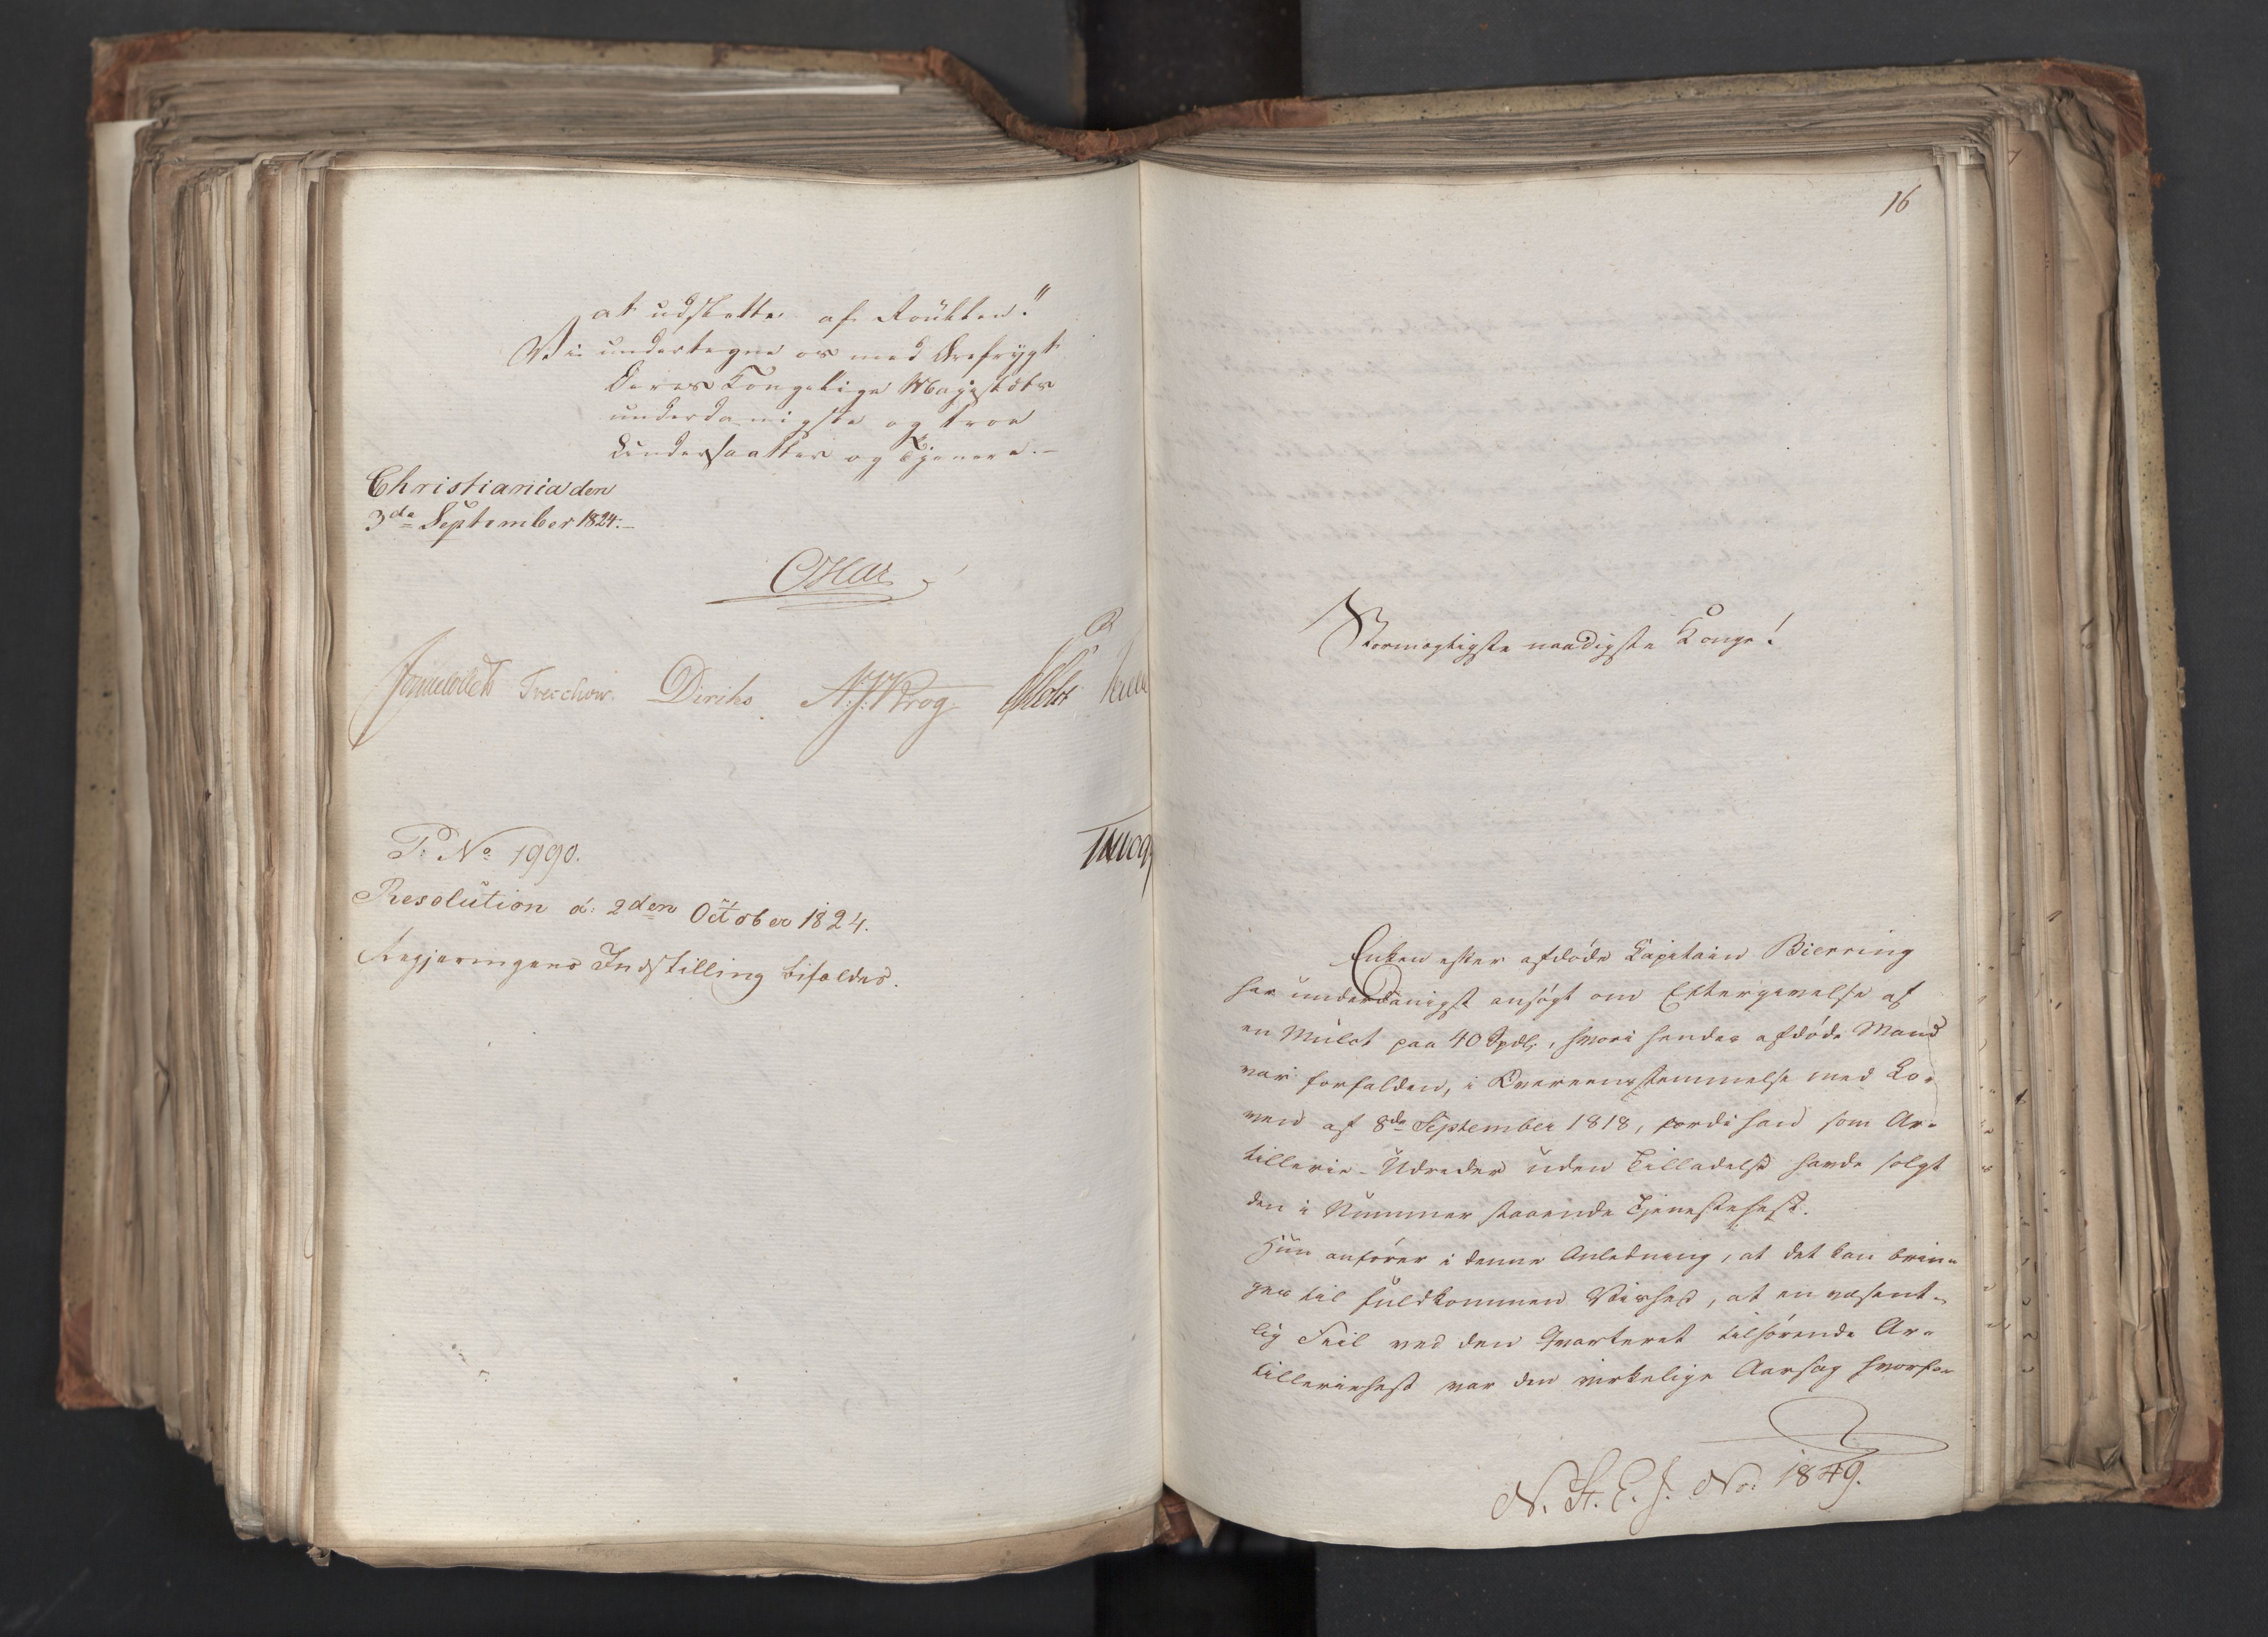 at udslette af Roullen."
Vi undertegne os med Ærefrygt
Deres Kongelige Majestæts
underdanigste og troe
Undersaatter og Tjenere.-
Christiania den
3de September 1824.-
Treschow. Diriks N. J. Krog
P: No 1990.
Resolution d: 2den October 1824.
Regjeringens Indstilling bifaldes.
16
Stormægtigste naadigste Konge!
Enken efter afdøde Capitain Bierring
har underdanigst ansøgt om Eftergivelse af
en Mulct paa 40 Spdlr, hvori hendes afdøde Mand
var forfalden, i Overeensstemmelse med Lo-
ven af 8de September 1818, fordi han som Ar-
tillerie-Udreder uden Tilladelse havde solgt
den i Nummer staaende Tjenestehest.
Hun anfører i denne Anledning, at det kan brin-
ges til fuldkommen Vished, at en væsent-
lig Feil ved den Qvarteret tilhørende Ar-
tilleriehest var den virkelige Aarsag hvorfor
N. St. E. J. No: 1849.